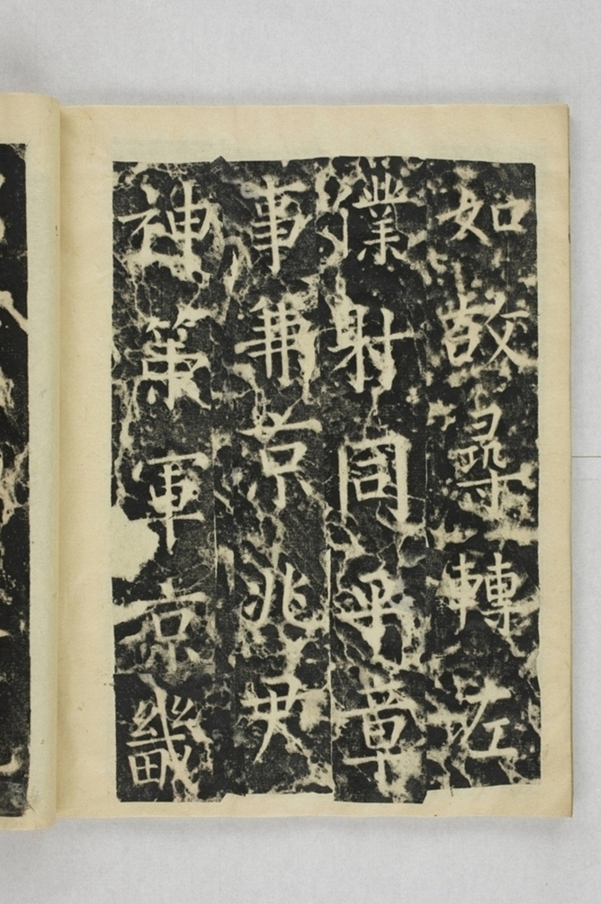 如故尋轉左
僕射同平章
事兼京兆尹
神策軍京畿